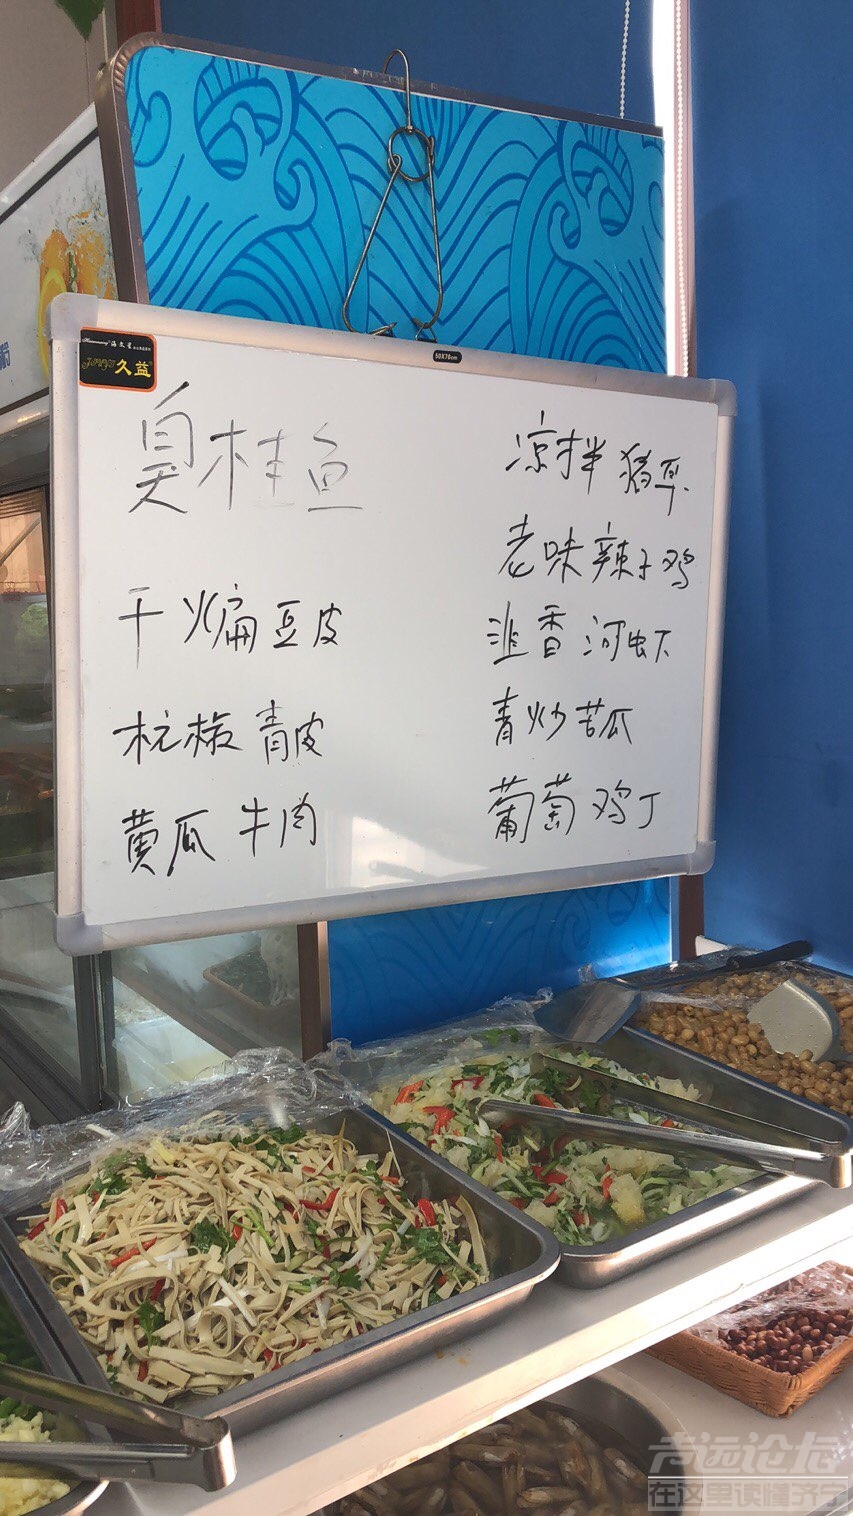 久益
50X70cm
臭桂鱼
干煸豆皮
杭椒青皮
黄瓜牛肉
凉拌猪耳
老味辣子鸡
韭香河虾
青炒苦瓜
葡萄鸡丁
声远论坛
在这里读懂济宁